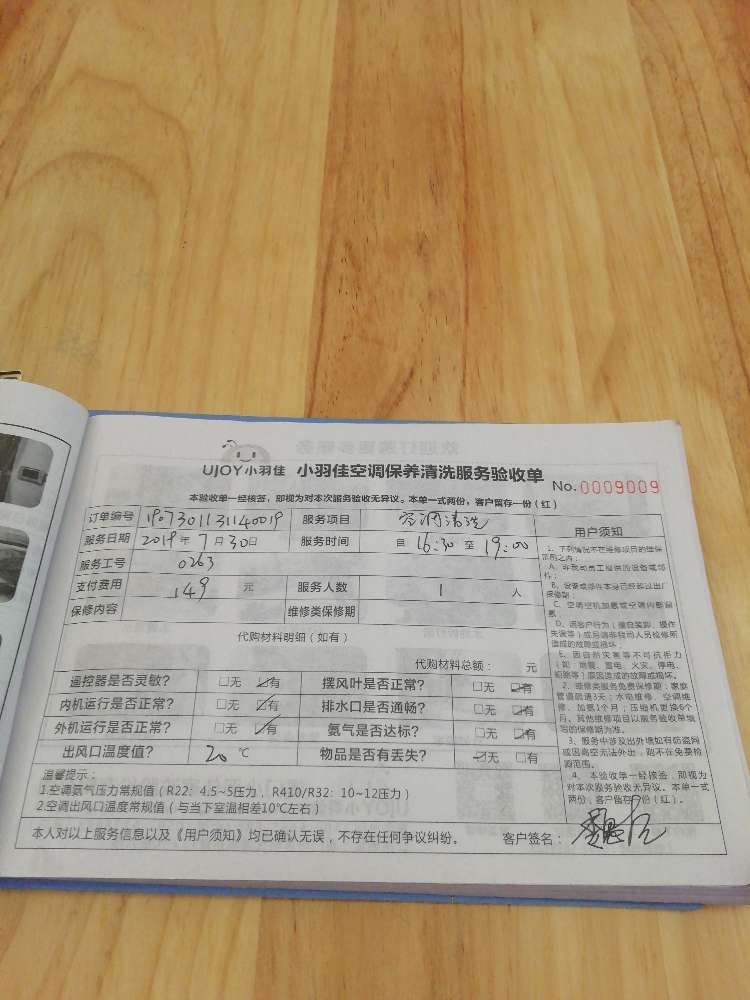 UJOY小羽佳 小羽佳空调保养清洗服务验收单
No. 0009009
本验收单一经核签，即视为对本次服务验收无异议。本单一式两份，客户留存一份（红）
订单编号 1907301131140019 服务项目 空调清洗
服务日期 2019年7月30日 服务时间 自 16:30 至 19:00
服务工号 0263
支付费用 149 元 服务人数 1 人
保修内容 维修类保修期
代购材料明细（如有）
代购材料总额： 元
遥控器是否灵敏？ □无 ☑有 摆风叶是否正常？ □无 ☑有
内机运行是否正常？ □无 ☑有 排水口是否通畅？ □无 ☑有
外机运行是否正常？ □无 ☑有 氨气是否达标？ □无 ☑有
出风口温度值？ 20 ℃ 物品是否有丢失？ ☑无 □有
温馨提示：
1.空调氨气压力常规值（R22：4.5~5压力，R410/R32：10~12压力）
2.空调出风口温度常规值（与当下室温相差10℃左右）
本人对以上服务信息以及《用户须知》均已确认无误，不存在任何争议纠纷。 客户签名：
用户须知
1、下列情况不在维修项目的维保
范围之内：
A、非我司员工提供的设备或部
件；
B、设备或部件本身已经超过出厂
保修期；
C、空调空机加氨或空调内部漏
氨
D、因客户行为（擅自装卸、操作
失误等）或另请非我司人员检修所
造成的故障或损坏；
E、因自然灾害等不可抗拒力
（如：地震、雷电、火灾、停电、
）原因造成的故障或损坏。
2、维修类服务免费保修期：家庭
管道疏通3天；水电维修、空调维
修、加氨1个月；压缩机更换6个
月。其他维修项目以服务验收单填
写的保修期为准。
3、服务中涉及出外墙如有防盗网
或因高空无法外出，则不在免费检
测范围。
4、本验收单一经核签，即视为
对本次服务验收无异议。本单一式
两份，客户留存一份（红）。